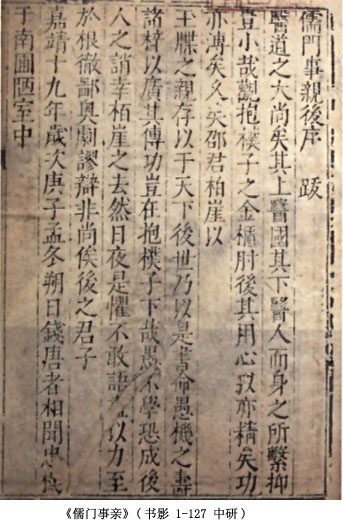 儒門事親後序 跋
醫道之大尚矣其上醫國其下醫人而身之所繫抑
豈小哉觀抱樸子之金櫃肘後其用心以亦精矣功
亦溥矣久矣邵君柏崖以
王牒之親存以于天下後世乃以是書命愚機之壽
諸梓以廣其傳功豈在抱樸子下哉愚不學恐成後
人之誚辛柏崖之去然日夜是懼不敢語 以力至
於根徹鄙奧劇謬辯非尚俟後之君子
嘉靖十九年歲次庚子孟冬朔日錢唐者相聞忠 
于南圃陋室中
《儒门事亲》（书影 1-127 中研）